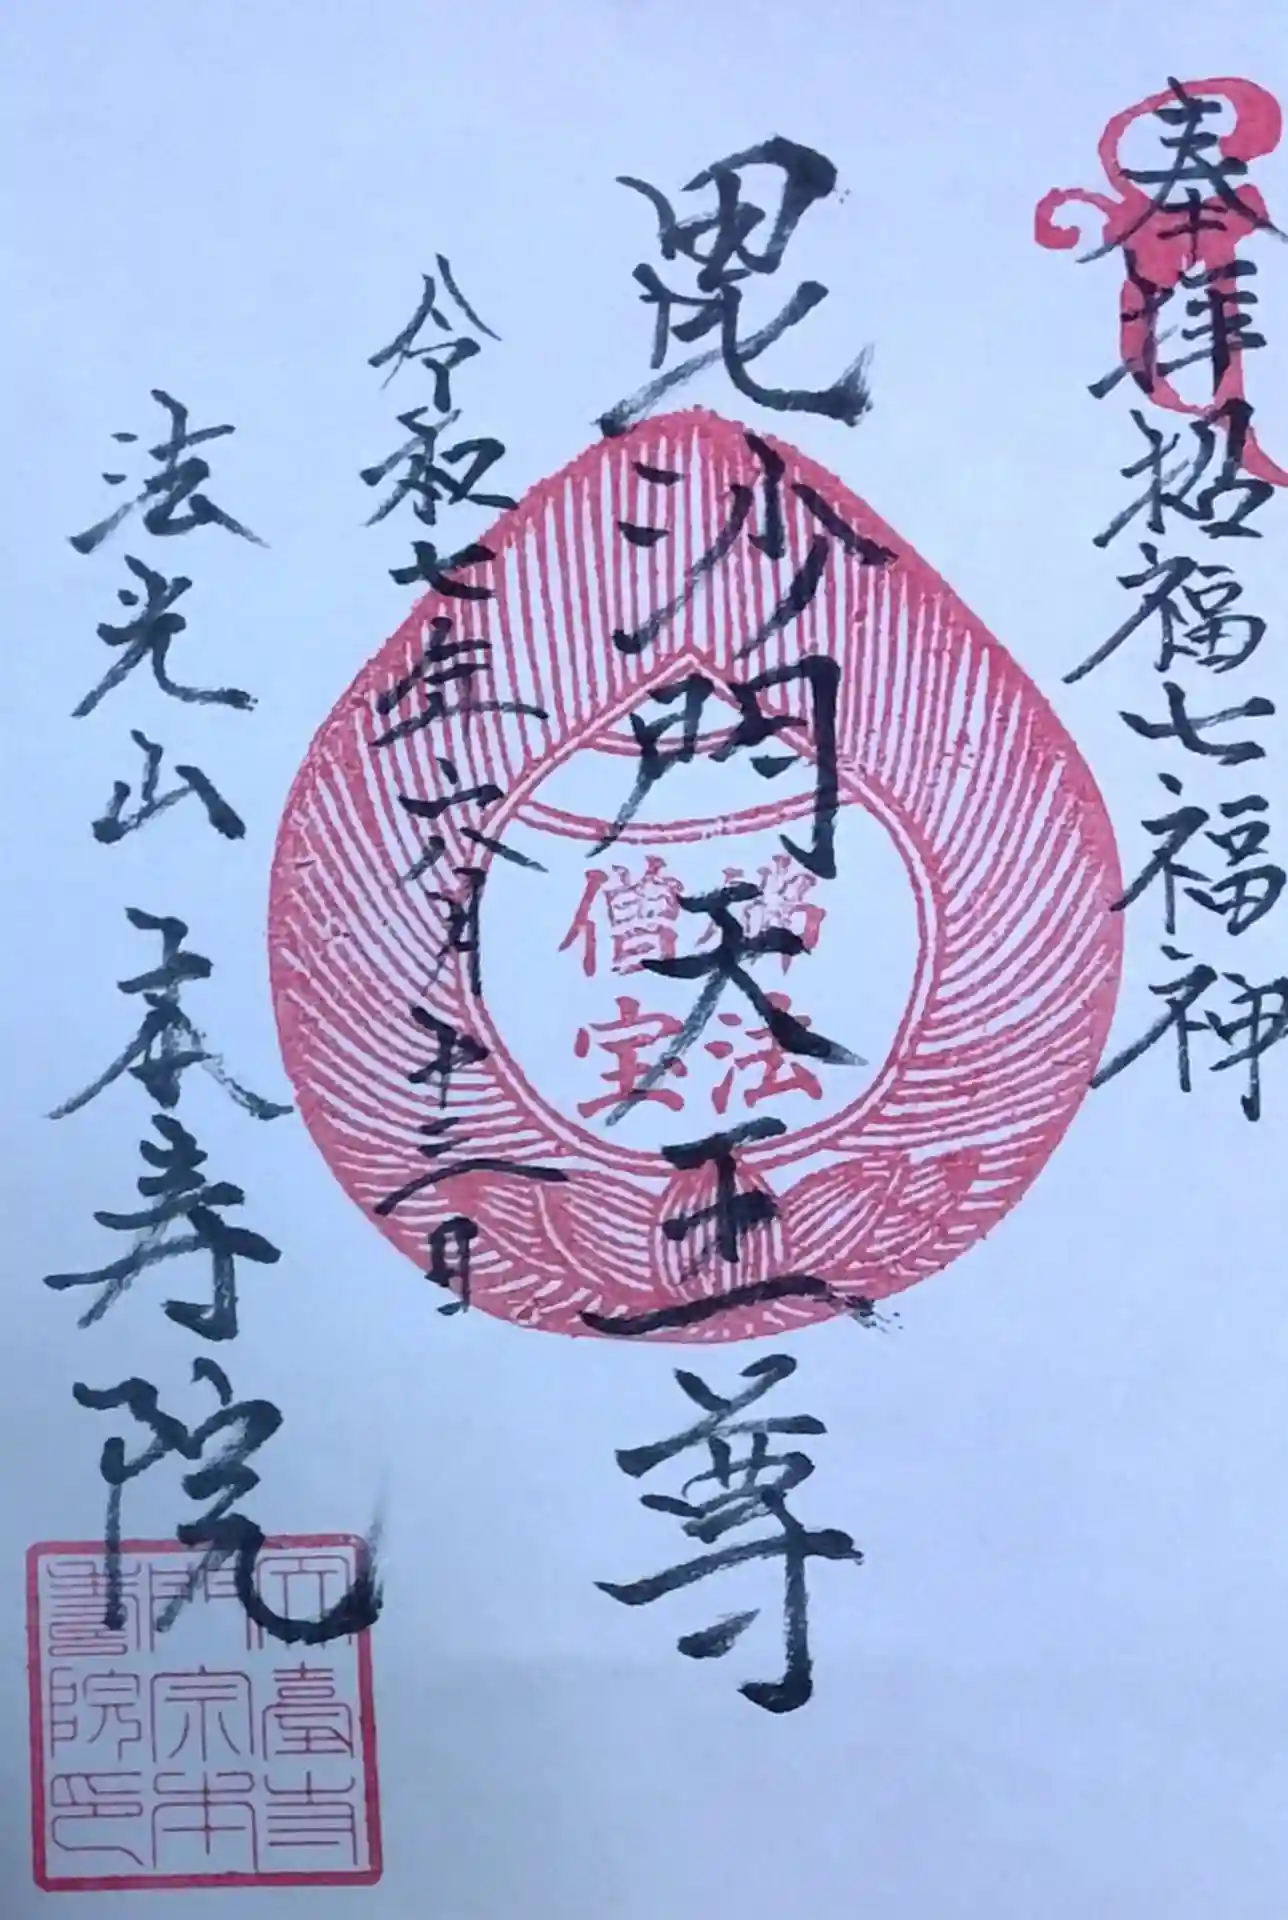 奉拝 招福七福神
毘沙門天王尊
令和七年六月十三日
法光山 本寿院
佛法
僧宝
天臺寺
門宗本
壽院印